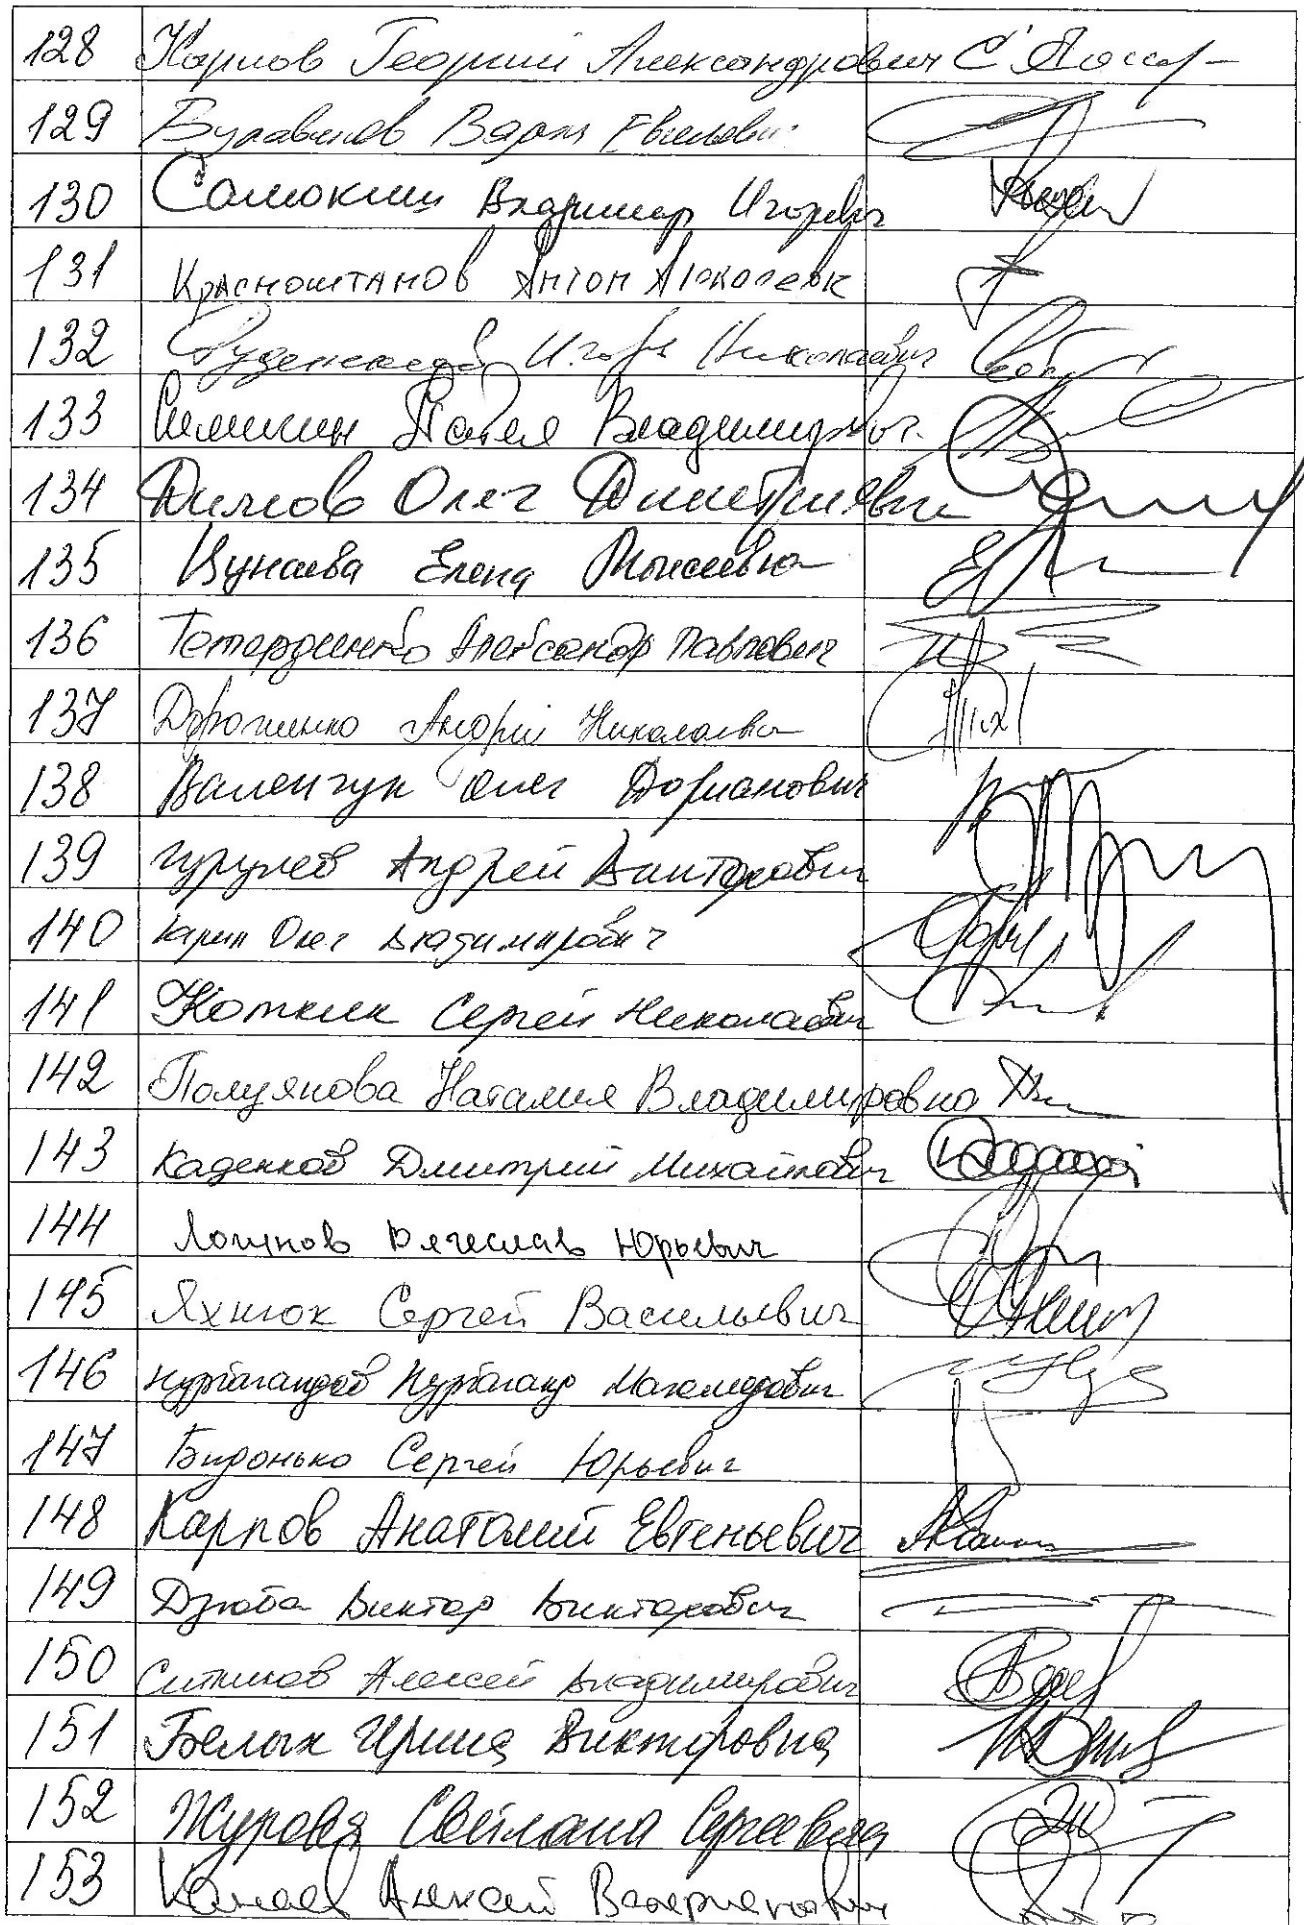 128 Карлов Георгий Александрович
129 Буравлёв
130 Самокиш Владимир Игоревич
131 Красноштанов Антон Алексеевич
132 Руденский Игорь Николаевич
133 Симигин Павел Владимирович
134 Димов Олег Дмитриевич
135 Цунаева Елена Моисеевна
136 Тетердинко Александр Павлович
137 Дорошенко Андрей Николаевич
138 Валенчук Олег Дорианович
139 Гурулев Андрей Викторович
140 Гарин Олег Владимирович
141 Коткин Сергей Николаевич
142 Полуянова Наталия Владимировна
143 Кадейков Дмитрий Михайлович
144 Логинов Вячеслав Юрьевич
145 Яхнюк Сергей Васильевич
146 Нурбагандов Нурбаганд Магомедович
147 Бидонько Сергей Юрьевич
148 Карпов Анатолий Евгеньевич
149 Дзюба Виктор Викторович
150 Ситников Алексей Владимирович
151 Белых Ирина Викторовна
152 Журова Светлана Сергеевна
153 Канаев Алексей Валерианович